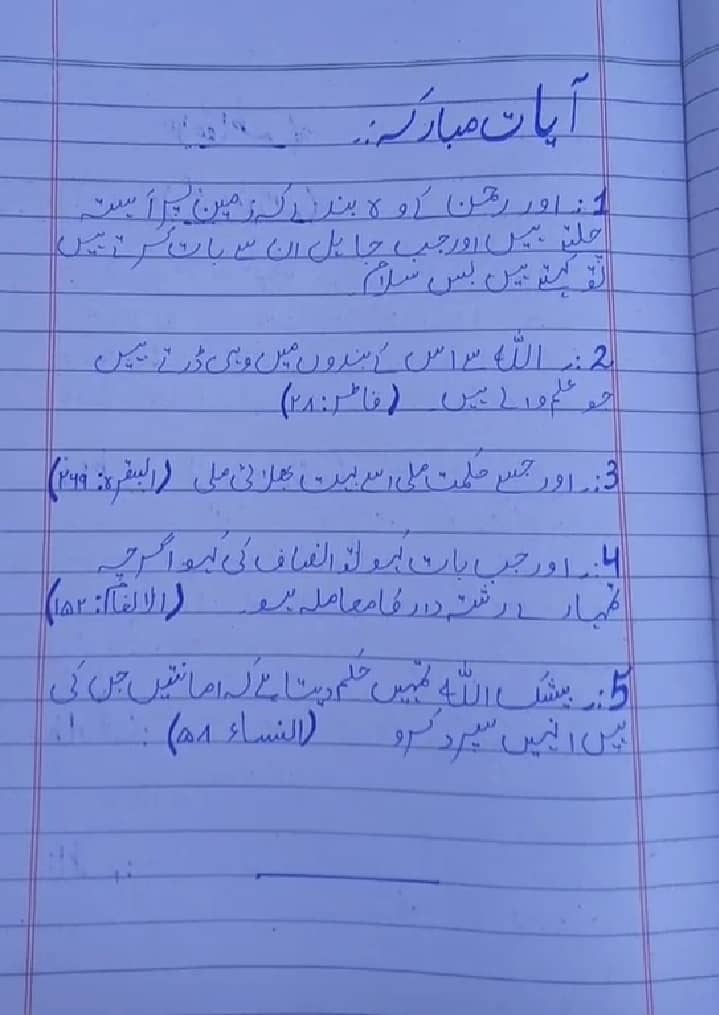 آیات مبارکہ:۔
1:۔ اور رحمن کے وہ بندے کہ زمین پر آہستہ
چلتے ہیں اور جب جاہل ان سے بات کرتے ہیں
تو کہتے ہیں بس سلام
2:۔ اللہ سے اس کے بندوں میں وہی ڈرتے ہیں
جو علم والے ہیں (فاطر: ۲۸)
3:۔ اور جسے حکمت ملی اسے بہت بھلائی ملی (البقرہ: ۲۶۹)
4:۔ اور جب بات کہو تو انصاف کی کہو اگرچہ
تمہارے رشتہ دار کا معاملہ ہو (الانعام: ۱۵۲)
5:۔ بیشک اللہ تمہیں حکم دیتا ہے کہ امانتیں جن کی
ہیں انہیں سپرد کرو (النساء ۵۸)